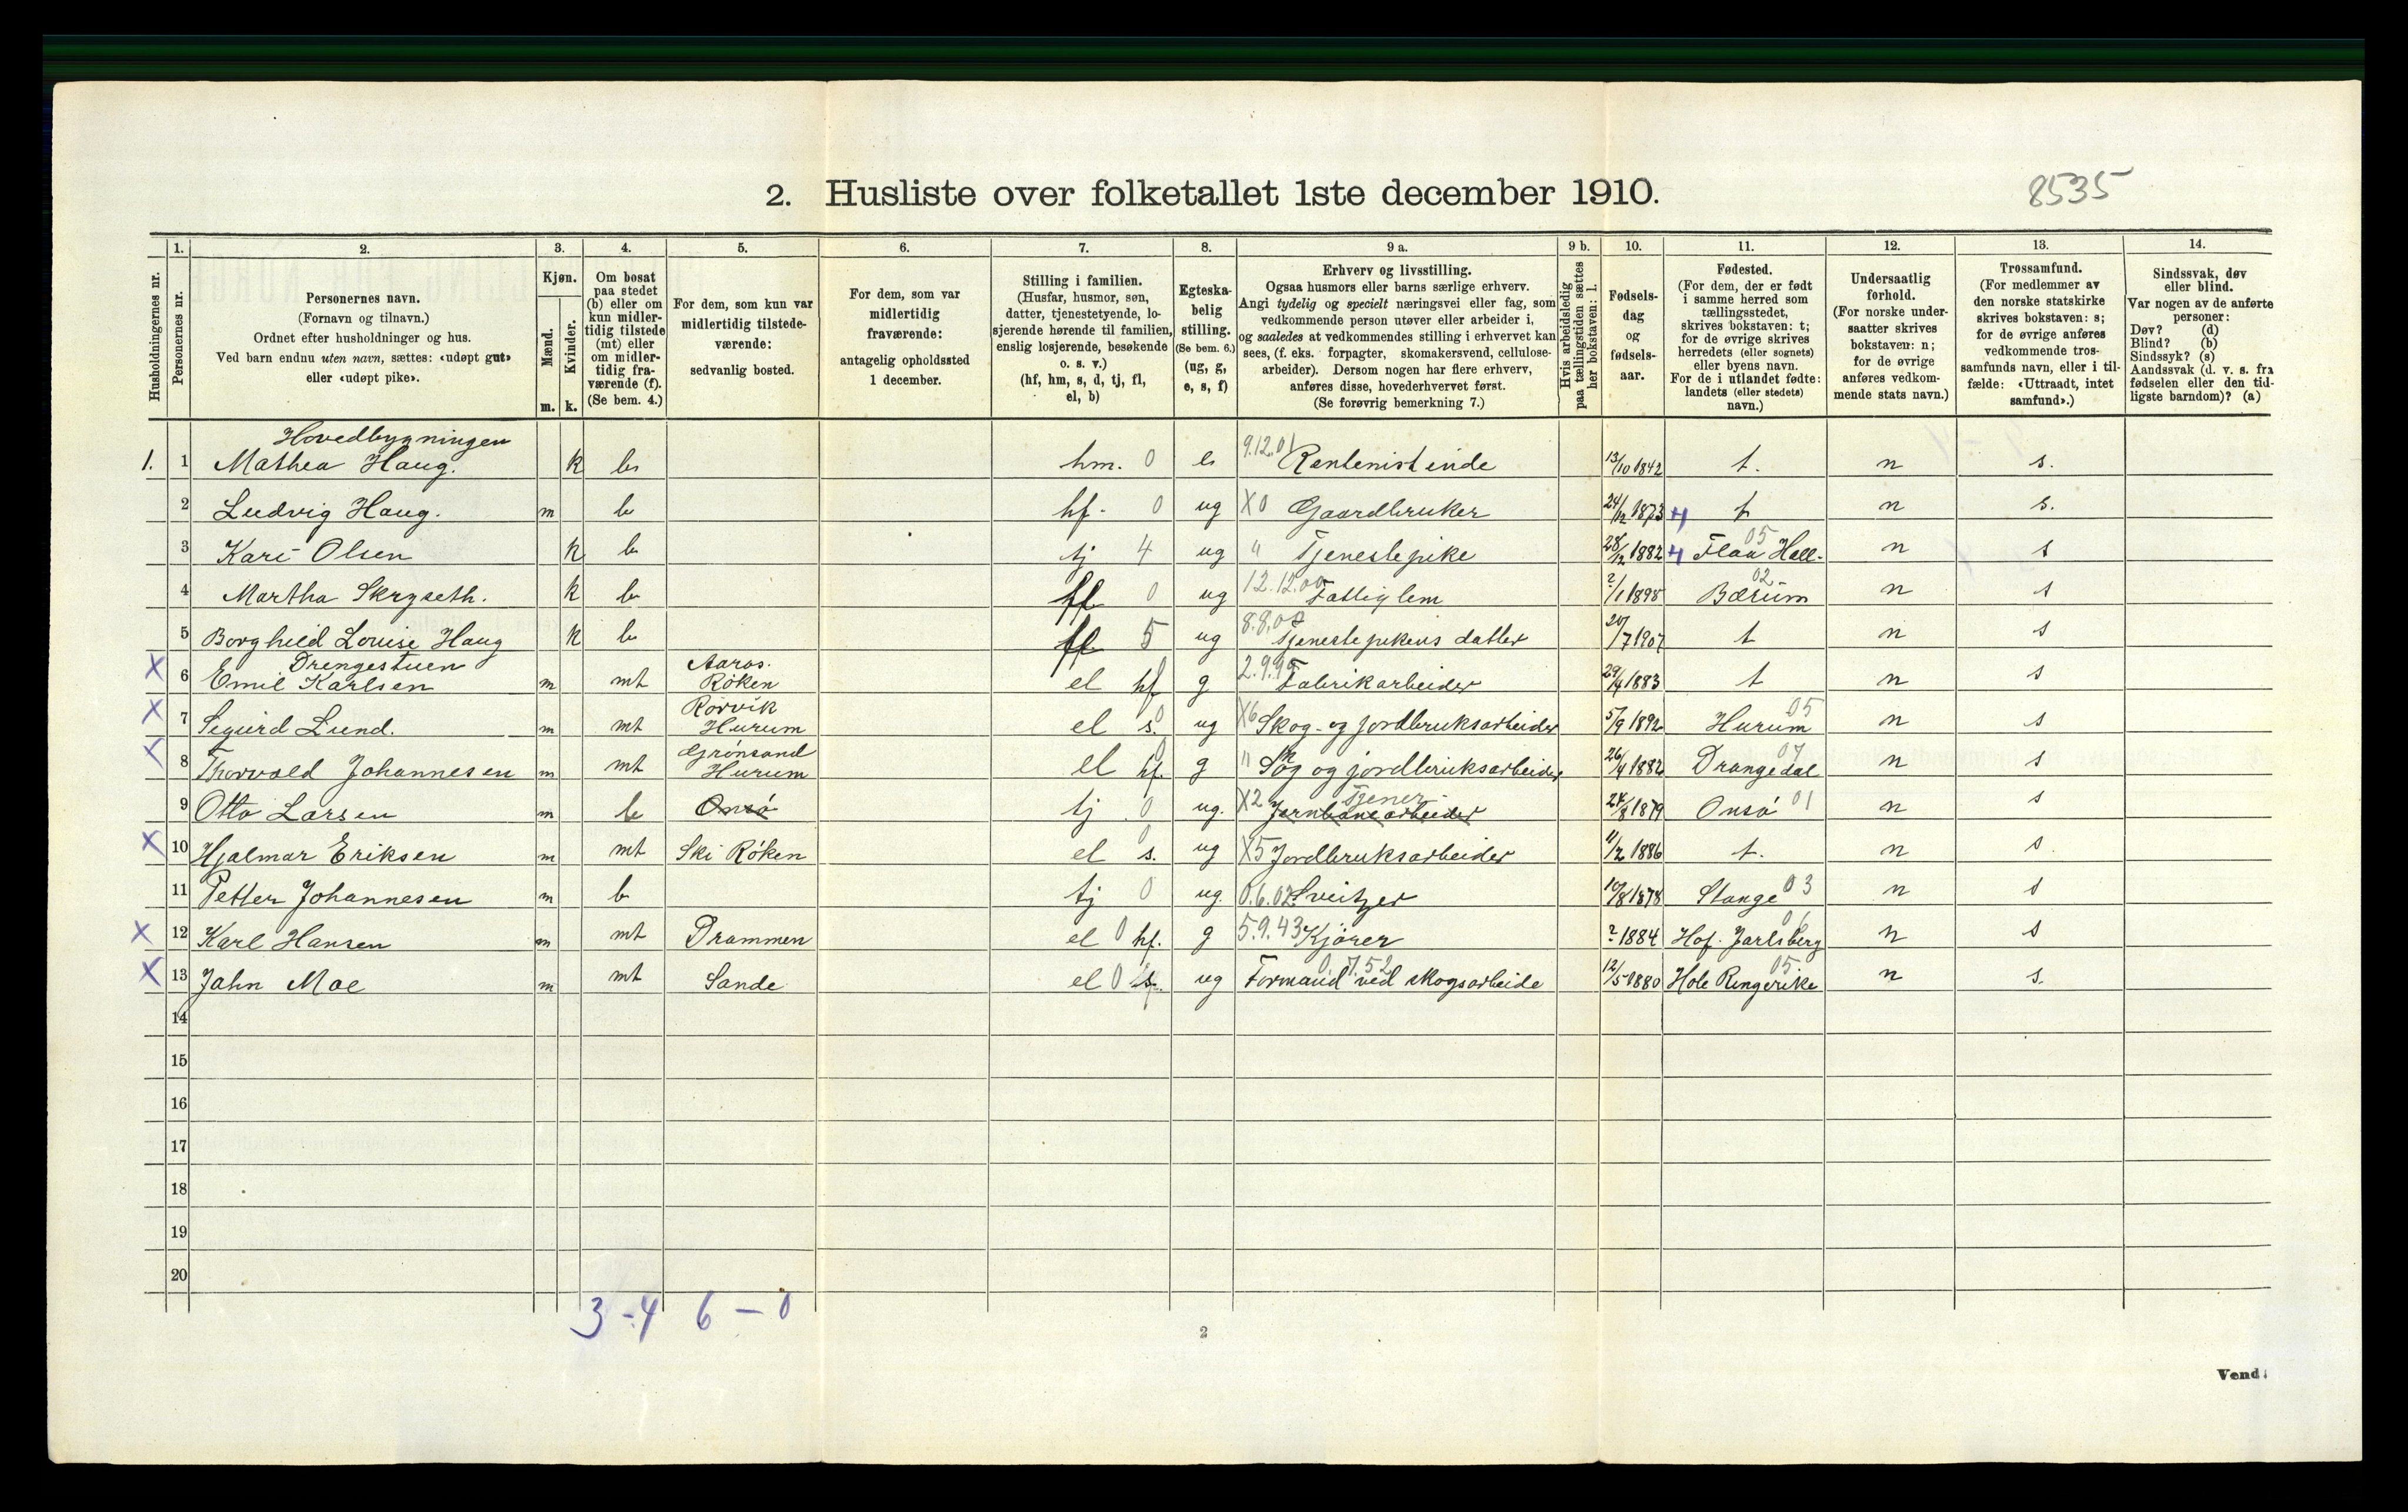 8535
2. Husliste over folketallet 1ste december 1910.
Husholdningernes nr.
1. Personernes nr.
2. Personernes navn.
(Fornavn og tilnavn.)
Ordnet efter husholdninger og hus.
Ved barn endnu uten navn, sættes: «udøpt gut»
eller «udøpt pike».
3. Kjøn.
Mænd. m.
Kvinder. k.
4. Om bosat
paa stedet
(b) eller om
kun midler-
tidig tilstede
(mt) eller
om midler-
tidig fra-
værende (f).
(Se bem. 4.)
5. For dem, som kun var
midlertidig tilstede-
værende:
sedvanlig bosted.
6. For dem, som var
midlertidig
fraværende:
antagelig opholdssted
1 december.
7. Stilling i familien.
(Husfar, husmor, søn,
datter, tjenestetyende, lo-
sjerende hørende til familien,
enslig losjerende, besøkende
o. s. v.)
(hf, hm, s, d, tj, fl,
el, b)
8. Egteska-
belig
stilling.
(Se bem. 6.)
(ug, g,
e, s, f)
9 a. Erhverv og livsstilling.
Ogsaa husmors eller barns særlige erhverv.
Angi tydelig og specielt næringsvei eller fag, som
vedkommende person utøver eller arbeider i,
og saaledes at vedkommendes stilling i erhvervet kan
sees, (f. eks. forpagter, skomakersvend, cellulose-
arbeider). Dersom nogen har flere erhverv,
anføres disse, hovederhvervet først.
(Se forøvrig bemerkning 7.)
9 b. Hvis arbeidsledig
paa tællingstiden sættes
her bokstaven: l.
10. Fødsels-
dag
og
fødsels-
aar.
11. Fødested.
(For dem, der er født
i samme herred som
tællingsstedet,
skrives bokstaven: t;
for de øvrige skrives
herredets (eller sognets)
eller byens navn.
For de i utlandet fødte:
landets (eller stedets)
navn.)
12. Undersaatlig
forhold.
(For norske under-
saatter skrives
bokstaven: n;
for de øvrige
anføres vedkom-
mende stats navn.)
13. Trossamfund.
(For medlemmer av
den norske statskirke
skrives bokstaven: s;
for de øvrige anføres
vedkommende tros-
samfunds navn, eller i til-
fælde: «Uttraadt, intet
samfund».)
14. Sindssvak, døv
eller blind.
Var nogen av de anførte
personer:
Døv? (d)
Blind? (b)
Sindssyk? (s)
Aandssvak (d. v. s. fra
fødselen eller den tid-
ligste barndom)? (a)
Hovedbygningen
1. 1 Mathea Haug. k b hm. 0 e 9.12.01 Rentenist enke 13/10 1842 t. n s.
2 Ludvig Haug. m b hf. 0 ug X0 Gaardbruker 24/12 1873 t n s.
3 Kari Olsen k b tj 4 ug " Tjenestepike 28/12 1882 Flaa Hall. 05 n s
4 Martha Skryseth. k b fl 0 ug 12.12.00 Fattiglem ?/1 1898 Bærum 02 n s
5 Borghild Louise Haug k b fl 5 ug 8.8.00 Tjenestepikens datter 20/7 1907 t n s
Drengestuen
X 6 Emil Karlsen m mt Aaros. Røken el hf g 2.9.99 Fabrikarbeider 29/4 1883 t n s
X 7 Sigurd Lund. m mt Rørvik Hurum el s. 0 ug X6 Skog- og jordbruksarbeider 5/9 1892 Hurum 05 n s
X 8 Thorvald Johannesen m mt Grønsand Hurum el hf. 0 g " Skog og jordbruksarbeider 26/4 1882 Drangedal 07 n s
9 Otto Larsen m b Onsø tj 0 ug. X2 Jernbanearbeider Tjener 24/8 1879 Onsø 01 n s
X 10 Hjalmar Eriksen m mt Ski Røken el s. 0 ug X5 Jordbruksarbeider 11/2 1886 t. n s.
11 Petter Johannesen m b tj 0 ug. 0.6.02 Sveitzer 10/8 1878 Stange 03 n s
X 12 Karl Hansen m mt Drammen el 0 hf. g 5.9.43 Kjører ? 1884 Hof. Jarlsberg 06 n s
X 13 Jahn Moe m mt Sande el 0 s. ug 0.7.52 Formand ved skogsarbeide 12/5 1880 Hole Ringerike 05 n s.
14
15
16
17
18
19
20
3 - 4 6 - 0
2
Vend!